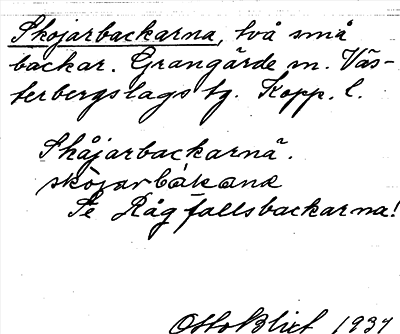 Skojarbackarna, två små
backar. Grangärde sn. Väs-
terbergslags tg. Kopp. l.
Skåjarbackarnä.
skòjarbákana
Se Rågfallsbackarna!
Otto Blixt 1937